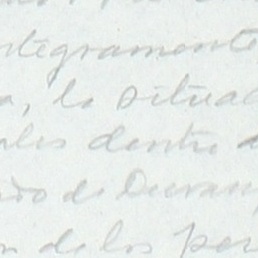 integramente
a, la situa
ales dentro
do de Duran
n de los per